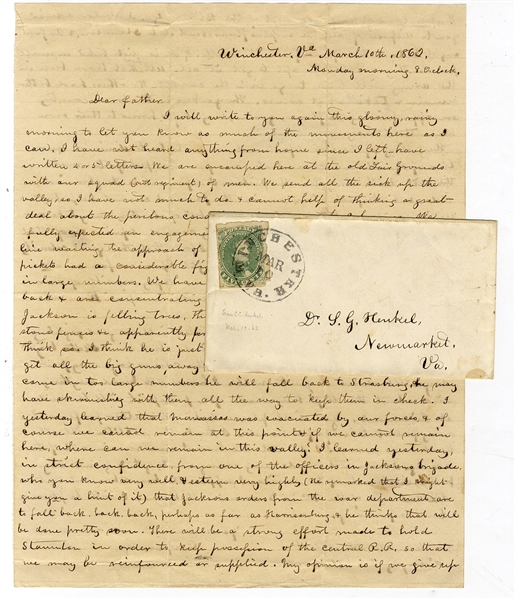 Winchester, Va March 10th, 1862,
Monday morning 8 O.clock,
Dear Father
I will write to you again this gloomy, rainy
morning to let you know as much of the movements here as I
can, I have not heard anything from home since I left, have
written 4 or 5 letters. We are encamped here at the old Fair Grounds
with our squad (not regiment) of men. We send all the sick up the
valley, so I have not much to do & cannot help of thinking a great
deal about the perilous
fully expected an engagem
line waiting the approach of
pickets had a considerable fig
in large numbers. We have
back & are concentrating
Jackson is felling trees, th
stone fences &, apparently
think so. I think he is just
get all the big guns away
come in too large numbers he will fall back to Strasburg, he may
have skirmishing with them all the way to keep them in check. I
yesterday learned that Manassas was evacuated by our forces & of
course we cannot remain at this point & if we cannot remain
here, where can we remain in this valley? I learned yesterday,
in strict confidence from one of the officers in Jacksons brigade,
who you know very well & esteem very highly (he remarked that I might
give you a hint of it) that Jacksons orders from the war department are
to fall back, back, back, perhaps as far as Harrisonburg & he thinks that will
be done pretty soon. There will be a strong effort made to hold
Staunton in order to keep possession of the central R.R. so that
we may be reinforced or supplied. My opinion is if we give up
WINCHESTER. VA.
MAR
Dr. S. G. Henkel,
Newmarket,
Va.